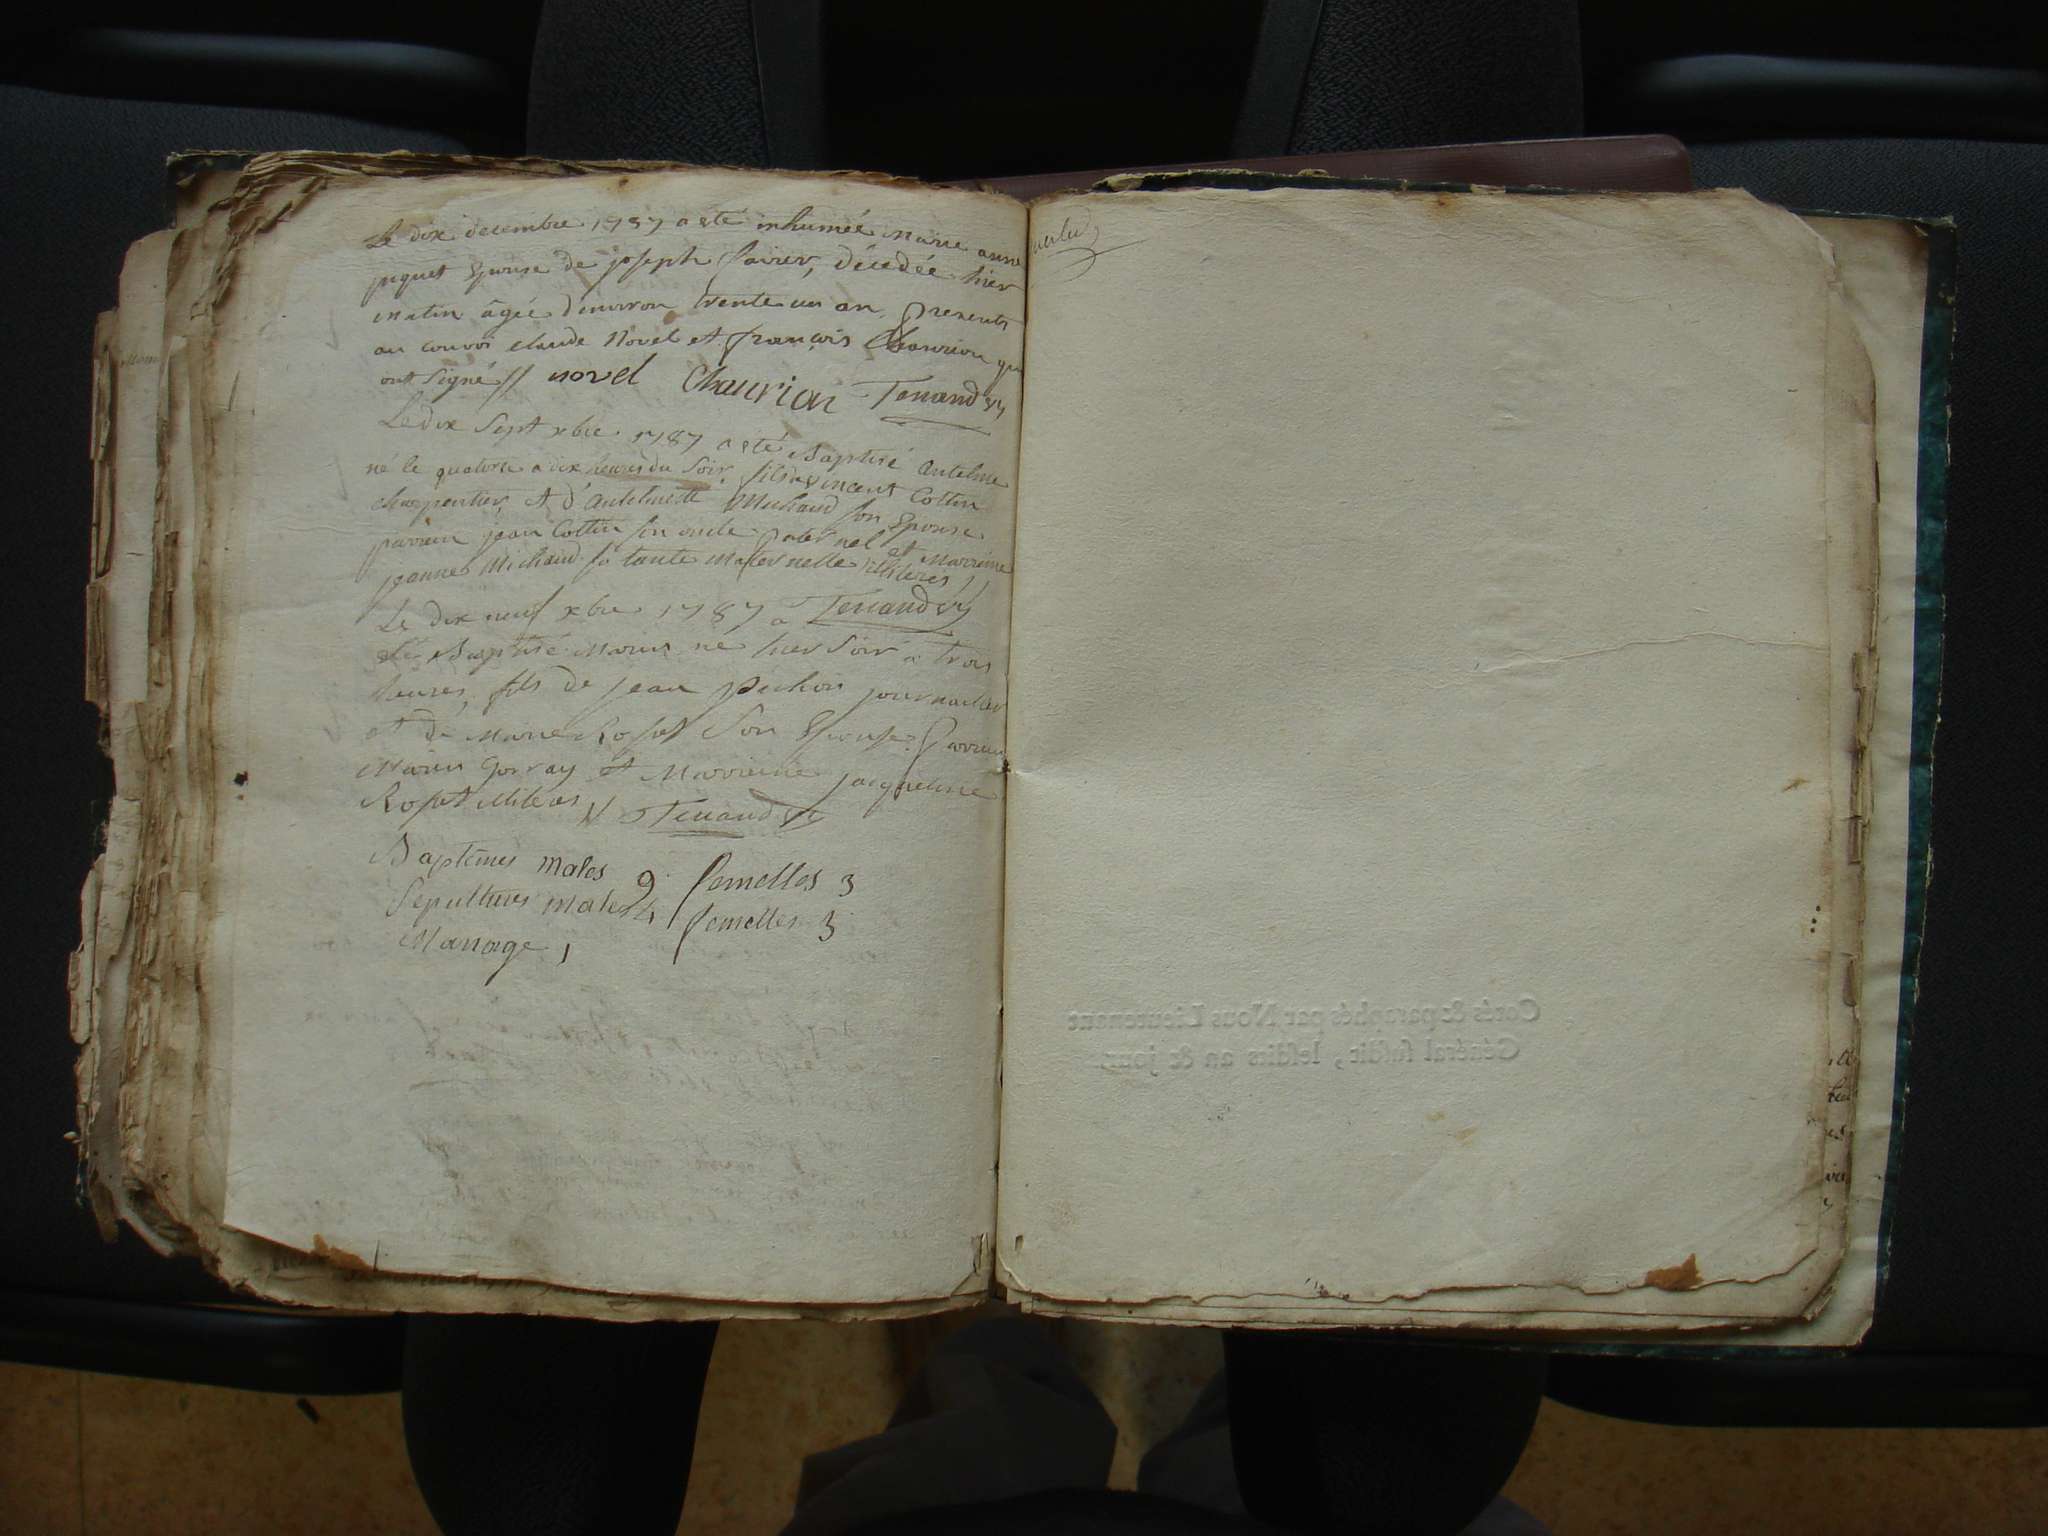 Le dix decembre 1787 a été inhumée Marie anne
piquet Epouse de joseph favier, décédée hier
matin âgée d'environ trente un an, presents
au convoi claude Novel et françois Chaurion qui
ont signé // novel Chaurion Tenand
Le dix Sept xbre 1787 a été Baptisé Antelme
né le quatorse a dix heures du Soir, fils de vincent Cottin
charpentier, et d'Anthelmette Michaud son Epouse
parrain jean Cottin son oncle paternel et Marreine
jeanne Michaud sa tante maternelle illiteres //
Le dix neuf xbre 1787 a Tenand
été Baptisé Marin né hier Soir à trois
heures, fils de jean pichon journalier
et de Marie Rosset Son Epouse. Parrain
Marin Gorray et Marreine jacqueline
Rosset illiteres // Tenand
Baptêmes males 9 femelles 3
Sepultures males 4 femelles 3
Mariage 1
Cotés & paraphés par Nous Lieutenant
Général susdit, lesdits an & jour